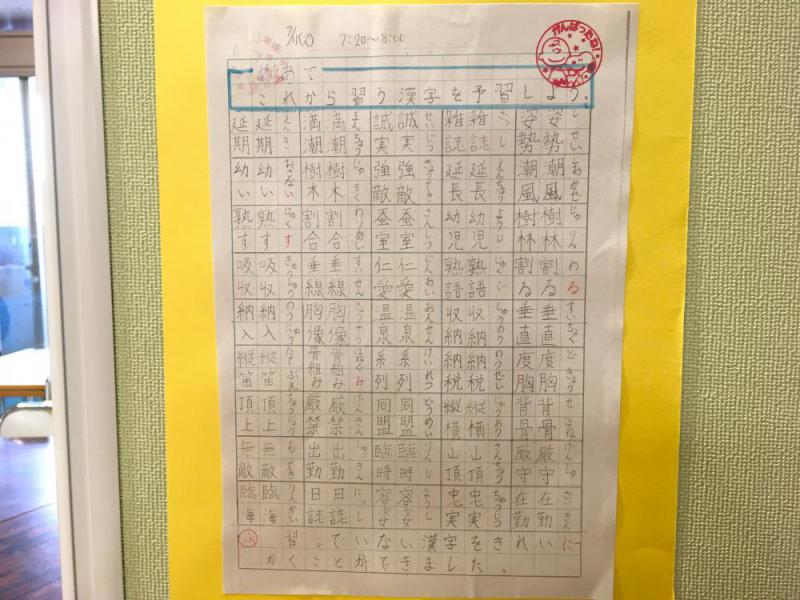 7:20〜8:00
がんばったね!
これから習う漢字を予習しよう。
しせい しおかぜ じゅりん わる すいちょく どきょう せぼね げんしゅ ざいきん
姿勢 潮風 樹林 割る 垂直 度胸 背骨 厳守 在勤
姿勢 潮風 樹林 割る 垂直 度胸 背骨 厳守 在勤
ざっし えんちょう ようじ じゅくご しゅうのう のうぜい じゅうおう さんちょう ちゅうじつ
雑誌 延長 幼児 熟語 収納 納税 縦横 山頂 忠実
雑誌 延長 幼児 熟語 収納 納税 縦横 山頂 忠実
せいじつ きょうてき さんしつ じんあい おんせん けいれつ どうめい りんじ ようし
誠実 強敵 蚕室 仁愛 温泉 系列 同盟 臨時 容姿
誠実 強敵 蚕室 仁愛 温泉 系列 同盟 臨時 容姿
まんちょう じゅもく わりあい すいせん きょうぞう ほねぐみ げんきん しゅっきん にっし
満潮 樹木 割合 垂線 胸像 骨組み 厳禁 出勤 日誌
満潮 樹木 割合 垂線 胸像 骨組み 厳禁 出勤 日誌
えんき おさない じゅくす きゅうしゅう のうにゅう たてぶえ ちょうじょう むてき りんかい
延期 幼い 熟す 吸収 納入 縦笛 頂上 無敵 臨海
延期 幼い 熟す 吸収 納入 縦笛 頂上 無敵 臨海
ふ 習っていない漢字をきれいに
かくことができました。